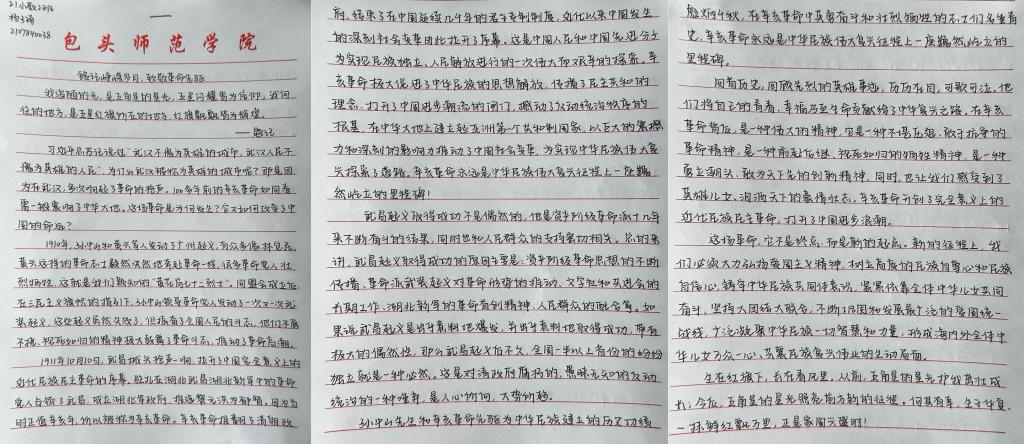 21小教2班
杨子瑜
2107840038
包头师范学院
铭记峥嵘岁月,致敬革命先驱
我追随的光,是五角星的星光,五星闪耀皆为信仰,我向
往的地方,是五星红旗所在的地方,红旗飘飘皆为辉煌。
——题记
习近平总书记说过"武汉不愧为英雄的城市,武汉人民不
愧为英雄的人民",为什么武汉被称为英雄的城市呢?那是因
为在武汉,多次响起了革命的枪声。100多年前的辛亥革命如同春
雷一般震响了中华大地。这场革命是为何发生?它又如何改变了中
国的命运?
1910年,孙中山和黄兴等人发动了广州起义,而众多像林觉民、
黄兴这样的革命志士毅然决然地奔赴革命一线,很多革命党人壮
烈牺牲,这就是我们熟知的"黄花岗七十二烈士"。同盟会成立后,
在三民主义旗帜的指引下,孙中山领导革命党人发动了一次又一次武
装起义,这些起义虽然失败了,但振奋了全国人民的斗志,他们不屈
不挠、视死如归的精神极大鼓舞了革命斗志,推动了革命高潮。
1911年10月10日,武昌城头枪声一响,拉开了中国完全意义上的
近代民族民主革命的序幕。驻扎在湖北武昌湖北新军中的革命
党人占领了武昌,成立湖北军政府,推选黎元洪为都督。因为当
时正值辛亥年,所以被称为辛亥革命。辛亥革命推翻了清朝政
府,结束了在中国延续几千年的君主专制制度,近代以来中国发生
的深刻社会变革由此拉开了序幕。这是中国人民和中国先进分子
为实现民族独立、人民解放进行的一次伟大而艰辛的探索。辛
亥革命极大促进了中华民族的思想解放,传播了民主共和的
理念,打开了中国进步潮流的闸门,撼动了反动统治秩序的
根基,在中华大地上建立起亚洲第一个共和制国家,以巨大的震撼
力和深刻的影响力推动了中国社会变革,为实现中华民族伟大复
兴探索了道路。辛亥革命永远是中华民族伟大复兴征程上一座巍
然屹立的里程碑!
武昌起义取得成功不是偶然的,他是资产阶级革命派十几年
来不断奋斗的结果,同时也和人民群众的支持密切相关。总的来
讲,武昌起义取得成功的原因主要是:资产阶级革命思想的不断
传播,革命派武装起义对革命形势的推动,文学社和共进会的
长期工作,湖北新军的革命首创精神,人民群众的配合等。如
果说武昌起义是出乎意料地爆发,并出乎意料地取得成功,带有
极大的偶然性,那么武昌起义后不久,全国一半以上省份的纷纷
独立就是一种必然。这是对清政府腐朽的、愚昧无知的反动
统治的一种唾弃,是人心所向,大势所趋。
孙中山先生和辛亥革命先驱为中华民族建立的历史功绩
彪炳千秋,在辛亥革命中英勇奋斗和壮烈牺牲的志士们名垂青
史,辛亥革命永远是中华民族伟大复兴征程上一座巍然屹立的
里程碑。
回看历史,回顾先烈的英雄事迹,历历在目,可歌可泣,他
们将自己的青春、幸福乃至生命贡献给了中华复兴之路,在辛亥
革命背后,是一种伟大的精神,它是一种不惧压迫,敢于抗争的
革命精神,是一种前赴后继、视死如归的牺牲精神,是一种
勇立潮头、敢为天下先的创新精神,同时,也让我们感受到了
英雄儿女,浪洒天下的豪情壮志,辛亥革命开创了完全意义上的
近代民族民主革命,打开了中国进步浪潮。
这场革命,它不是终点,而是新的起点。新的征程上,我
们必须大力弘扬爱国主义精神,树立高度的民族自尊心和民族
自信心,铸牢中华民族共同体意识,紧紧依靠全体中华儿女共同
奋斗,坚持大团结大联合,不断巩固和发展最广泛的爱国统一
战线,广泛凝聚中华民族一切智慧和力量,形成海内外全体中
华儿女万众一心、共襄民族复兴伟业的生动局面。
生在红旗下,长在春风里。从前,五角星的星光护我茁壮成
长;今后,五角星的星光照亮前方新的征程。何其有幸,生于华夏,
一抹鲜红飘万里,正是家国六盛时!